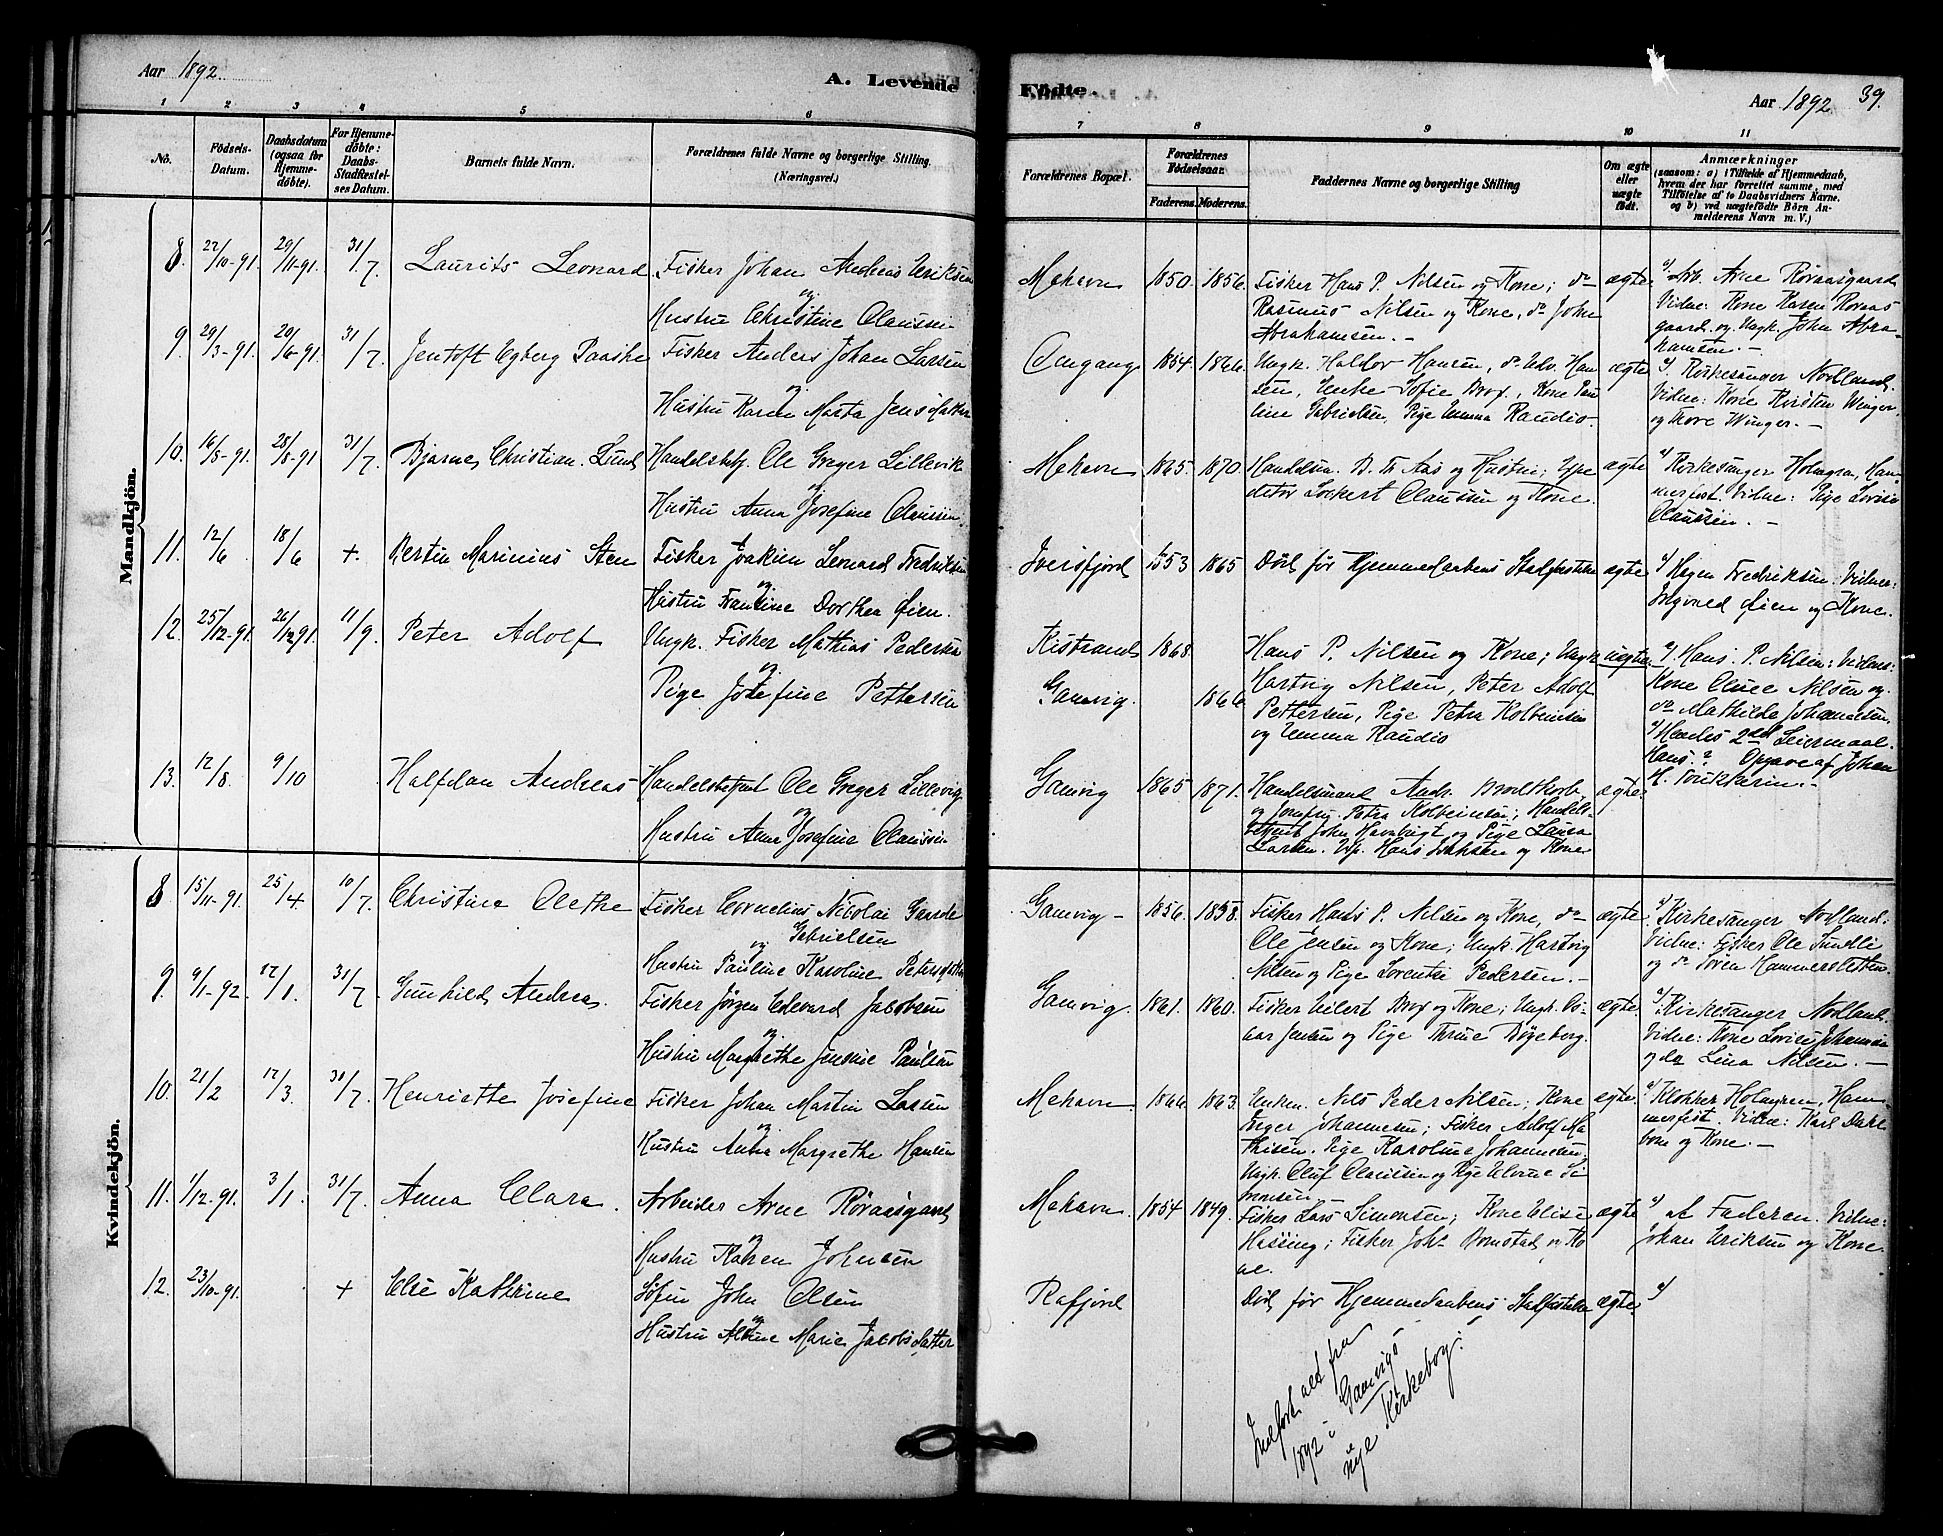 Aar 1892.
A. Levende
Födte.
Aar 1892
39.
1 2 3 4 5 6 7 8 9 10 11
No.
Födsels-
Datum.
Daabsdatum
(ogsaa for
Hjemme-
döbte).
For Hjemme-
döbte:
Daabs-
Stadfæstel-
ses Datum.
Barnets fulde Navn.
Forældrenes fulde Navne og borgerlige Stilling.
(Næringsvei.)
Forældrenes Bopæl.
Forældrenes
Födselsaar.
Faderens. Moderens.
Faddernes Navne og borgerlige Stilling
Om ægte
eller
uægte
födt.
Anmærkninger
(saasom: a) i Tilfælde af Hjemmedaab,
hvem der har forrettet samme, med
Tilföielse af to Daabsvidners Navne.
og b) ved uægtefödte Börn An-
melderens Navn m. V.)
Mandkjön.
8. 22/10-91. 29/11-91. 31/7. Laurits Leonard Fisker Johan Andreas Eriksen
og
Hustru Christine Claussen
Mehavn 1850. 1856. Fisker Hans P. Nilsen og Kone; do
Rasmus Nilsen og Kone, do John
Abrahamsen. -
ægte a/ Arb. Arne Röraasgaard
Vidne: Kone Karen Röraas
gaard og Ungk. John Abra
hamsen. -
9. 29/3-91. 20/6-91. 31/7. Jentoft Egberg Paaske Fisker Anders Johan Larsen
og
Hustru Karen Marta Jensdatter
Omgang 1854. 1866. Ungk. Haldor Hansen, do Edv. Han
sen, Enke Sofie Brox, Kone Pau
line Gabrielsen, Pige Emma Raudio.
ægte a/. Kirkesanger Nodland.
Vidne: Kone Kirsten Winger
og Thore Winger. -
10. 16/8-91. 28/8-91 31/7. Bjarne Christian Lund Handelsbetj. Ole Greger Lillevik
og
Hustru Anna Josefine Claussen.
Mehavn 1865. 1870. Handelsm. B. Th. Aas og Hustru; Expe
ditör Lockert Claussen og Kone.
ægte a/ Kirkesanger Holmgren, Ham-
merfest. Vidne: Pige Lovise
Claussen. -
11. 12/6 18/6 + Bertin Marinius Sten Fisker Joakim Leonard Fredriksen
og
Hustru Frantine Dorthea Øien.
Iversfjord 1853 1865 Död før Hjemmedaabens Stadfæstelse ægte a/ Hagen Fredriksen. Vidne:
Ingvald Øien og Kone.
12. 25/12-91. 26/12 91. 11/9. Peter Adolf Ungk. Fisker Mathias Pedersen
og
Pige Josefine Pettersen
Kistrand 1868.
Gamvig. 1866.
Hans P. Nilsen og Kone; Ungk.
Hartvig Nilsen, Peter Adolf
Pettersen, Pige Petra Kolbeinsen
og Emma Raudio
uægte a/. Hans P. Nilsen: Vidne:
Kone Oline Nilsen og
do Mathilde Johannesen.
b/ Hendes 2det Leiermaal.
Hans: ? Opgave af Johan
H.
13. 12/8 9/10 Halfdan Andreas Handelsbetjent Ole Greger Lillevig
og
Hustru Anna Josefine Claussen
Gamvig 1865 1871. Handelsmand Andr. Brodtkorb
og Jomfru Petra Kolbeinsen; Handels-
betjent John Havnbrigt og Pige Laura
Larsen. Exp. Hans Isaksen og Kone
ægte.
Kvindekjön.
8 15/11-91. 25/4. 10/7. Christine Olethe Fisker Cornelius Nicolai Gunde
Gabrielsen
og
Hustru Pauline Karoline Petersdatter
Gamvig - 1856. 1858. Fisker Hans P. Nilsen og Kone, do
Ole Jensen og Kone; Ungk. Hartvig
Nilsen og Pige Lorentse Pedersen. -
ægte a/ Kirkesanger Nodland.
Vidne: Fisker Ole Sundli
og do Sören Hammersletten.
9. 9/1-92. 17/1. 31/7. Gunhild Andrea. Fisker Jörgen Edevard Jacobsen
og
Hustru Margrethe Jensine Paulsen
Gamvig. 1861. 1860. Fisker Eilert Brox og Kone; Ungk. Os-
kar Jensen og Pige Trine Bøgeberg.
ægte. a/. Kirkesanger Nodland.
Vidne: Kone Lovise Johannesen
og do Lina Nilsen. -
10. 21/2 17/3. 31/7. Henriette Josefine Fisker Johan Martin Larsen
og
Hustru Anna Margrethe Hansen
Mehavn. 1866. 1863. Enkem. Nils Peder Nilsen; Kone
Inger Johannesen; Fisker Adolf Ma
thisen. Pige Karoline Johannesen.
Ungk. Oluf Claussen og Pige Elerne Si
monsen
ægte. a/ Klokker Holmgren, Ham
merfest. Vidne: Karl Dahl
bone og Kone. -
11. 1/12.91. 3/1. 31/7. Anna Clara. Arbeider Arne Röraasgaard
og
Hustru Karen Johnsen
Mehavn. 1854 1849. Fisker Lars Simonsen; Kone Elise
Hassing; Fisker Joh. Bomstad og Ko
ne.
ægte a/ af Faderen. Vidne:
Johan Eriksen og Kone.
12. 23/10-91. + Else Kathrine Søfin John Olsen
og
Hustru Albine Marie Jacobsdatter
Rafjord Död før Hjemmedaabens Stadfæstelse ægte a/
Indført alt fra
1892 i Gamvigs
nye Kirkebog.